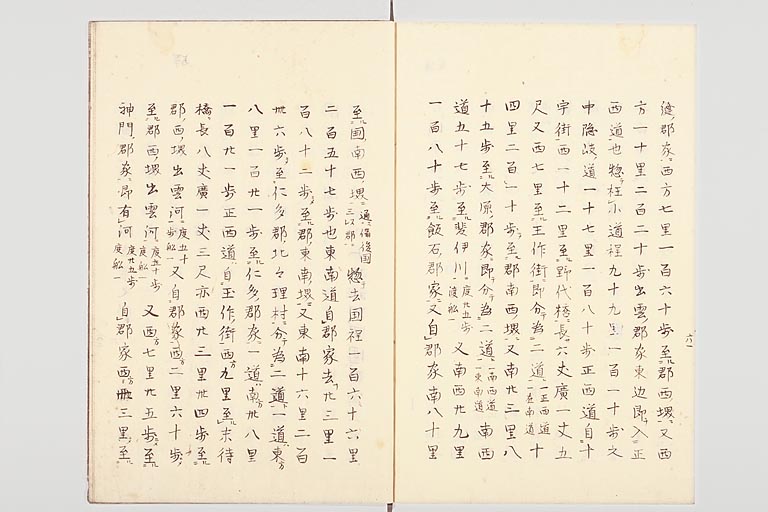 縫郡家西方七里一百六十歩至郡西堺又西
方一十里二百二十歩出雲郡家東边即入正
西道也惣枉小道程九十九里一百一十歩之
中隠岐道一十七里一百八十歩正西道自十
字街西一十二里至野代橋長六丈廣一丈五
尺又西七里至玉作街即分為二道一正西道一在南道十
四里二百一十歩至郡南西堺又南廾三里八
十五歩至大原郡家即分為二道一南西道一東南道南西
道五十七歩至斐伊川度廾五歩渡船一又南西廾九里
一百八十歩至飯石郡家又自郡家南八十里
至国南西堺通備後国三以郡惣去国裎一百六十六里
二百五十七歩也東南道自郡家去廾三里一
百八十二歩至郡東南堺又東南十六里二百
卅六歩至仁多郡北々理村分為二道一道東
八里一百廾一歩至仁多郡家一道南卅八里
一百廾一歩正西道自玉作街西九里至来待
橋長八丈廣一丈三尺亦西廾三里卌四歩至
郡西堺出雲河度五十歩船一又自郡家西二里六十歩
至郡西堺出雲河度五十歩度船一又西七里廾五歩至
神門郡家即有河度廾五歩度船一自郡家西卅三里至